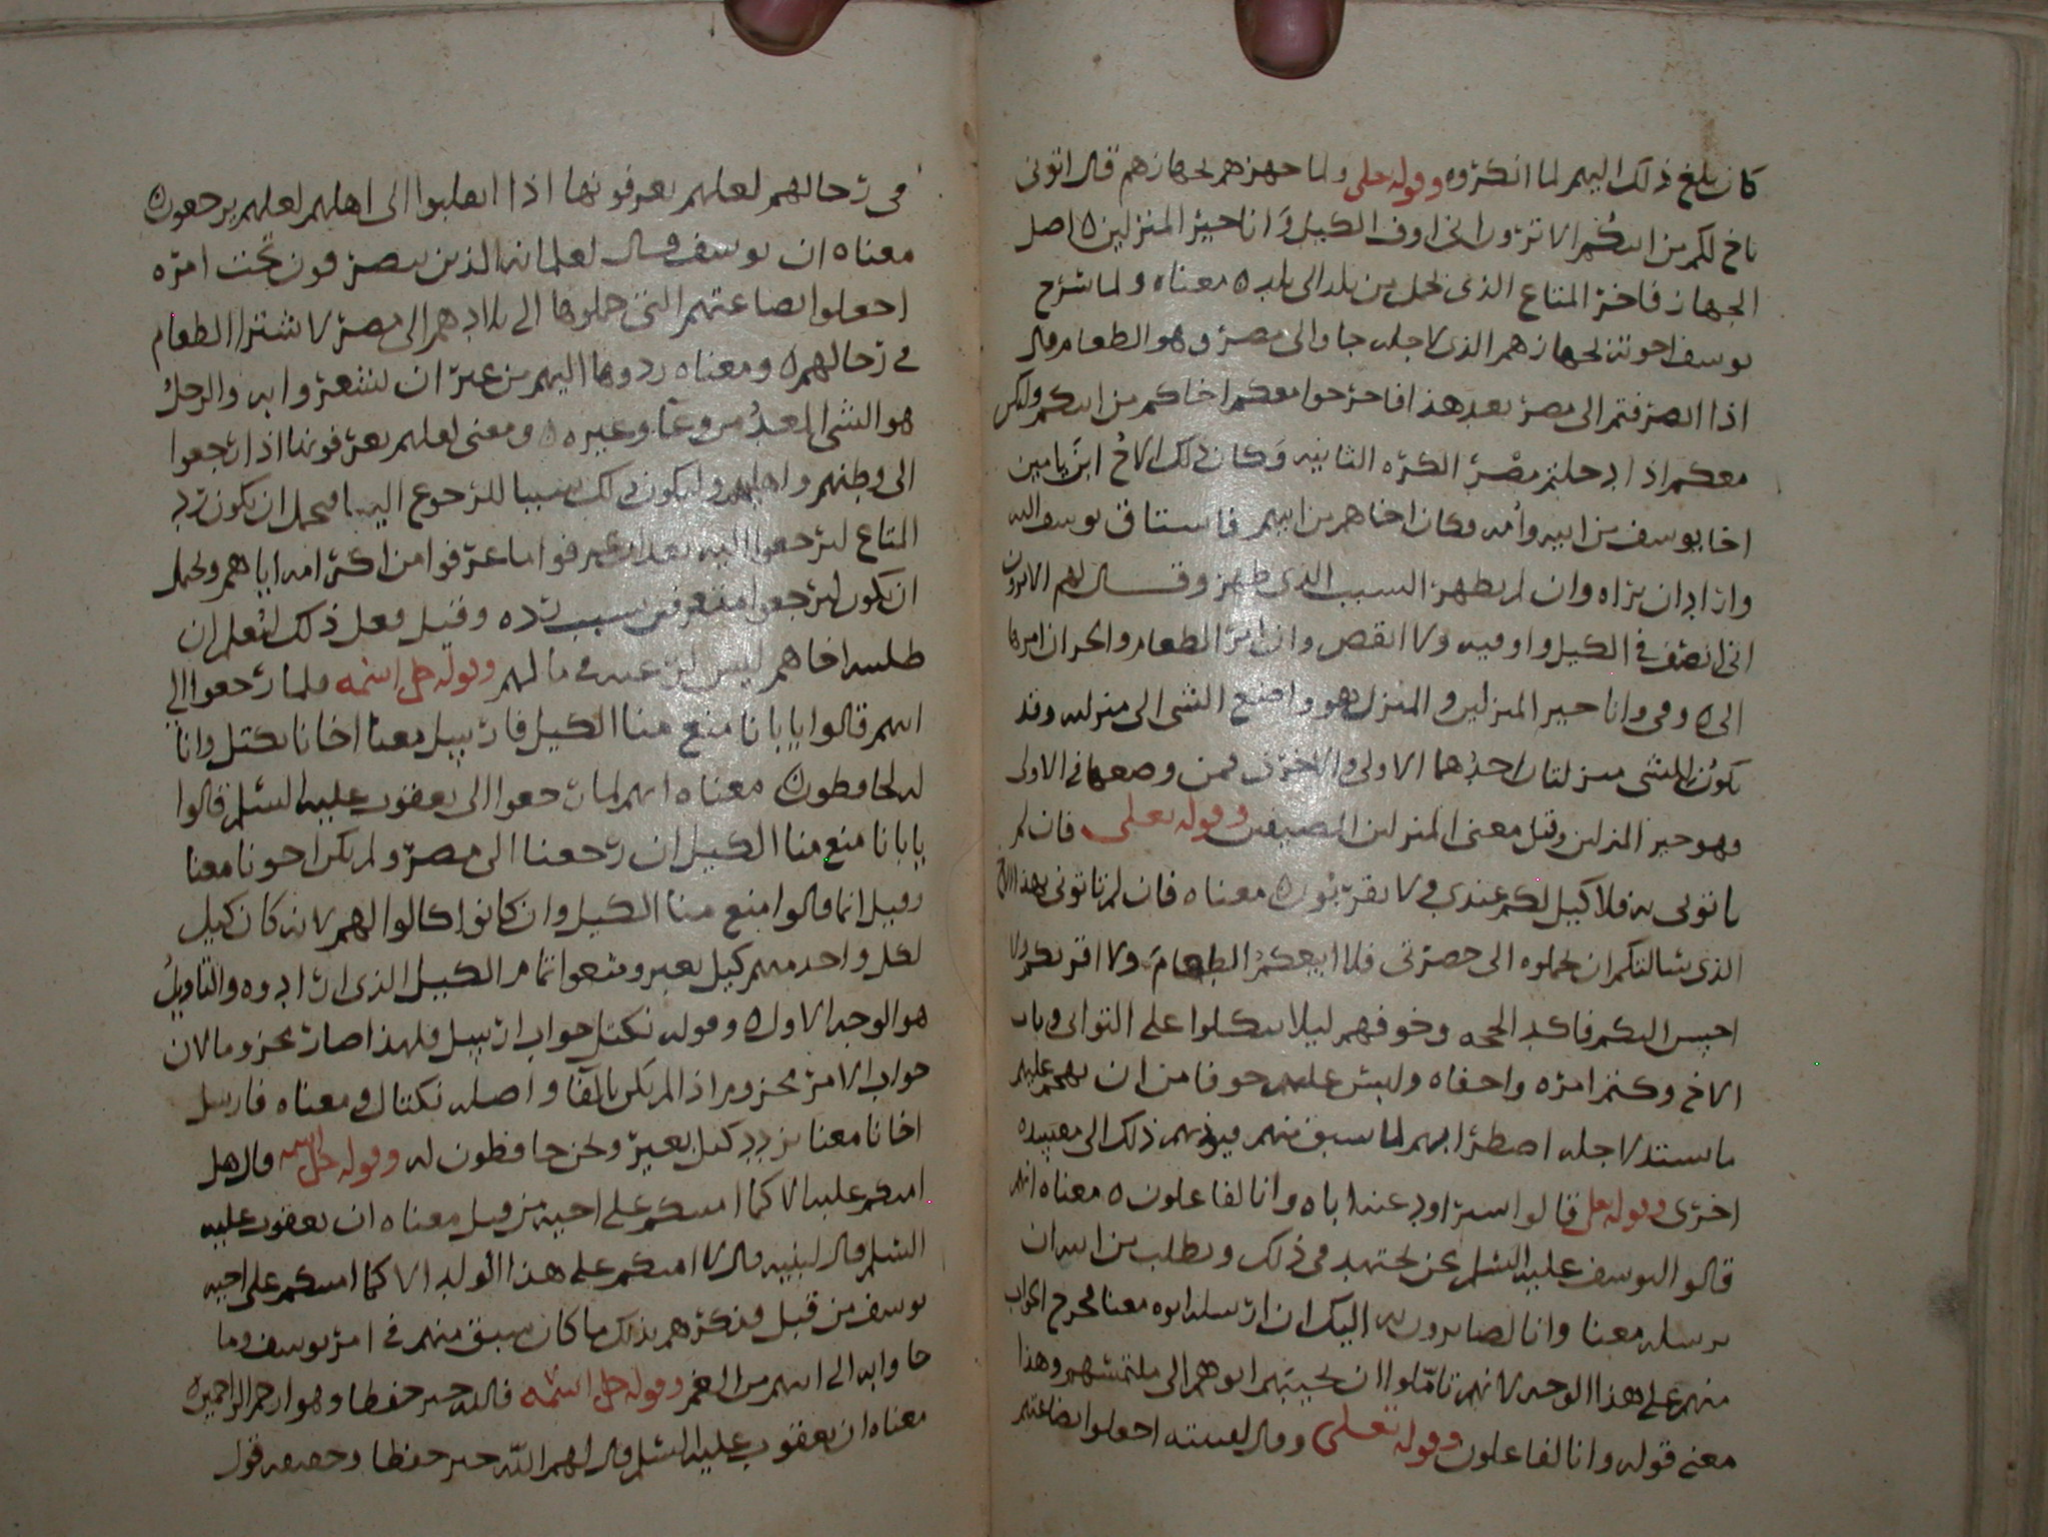 كان بلغ ذلك اليهم لما انكروه وقوله تعلى ولما جهزهم بجهازهم قال اتونى
باخ لكم من ابيكم الا ترون انى اوف الكيل وانا خير المنزلين اصل
الجهاز فاخر المتاع الذى يحمل من بلد الى بلد معناه ولما شرح
يوسف اخوته بجهازهم الذى لاجله جاوا الى مصر وهو الطعام قال
اذا انصرفتم الى مصر بعد هذا فاخرجوا معكم اخاكم من ابيكم وليكن
معكم اذا دخلتم مصر الكره الثانيه وكان ذلك الاخ ابن يامين
اخا يوسف من ابيه وأمه وكان اخاهم من ابيهم فاستاق يوسف اليه
واراد ان يراه وان لم يظهر السبب الذى ظهر وقال لهم الا ترون
انى انصف فى الكيل واوفيه ولا انقص وان امر الطعام والخزان امرها
الى ومى وانا خير المنزلين والمنزل هو واضع الشى الى منزلته وقد
يكون للشى منزلتان احدهما الاولى والاخرى فمن وضعها فى الاولى
وهو خير المنزلين وقيل معنى المنزلين المضيفين وقوله تعلى فان لم
تاتونى به فلا كيل لكم عندى ولا تقربون معناه فان لم تاتونى بهذا الاخ
الذى سالتكم ان تحملوه الى حضرتى فلا ابيعكم الطعام ولا اقربكم ولا
احبس اليكم فاكد الحجه وخوفهم ليلا يتكلوا على التوانى فى باب
الاخ وكتم امره واخفاه وليس عليهم خوفا من ان يهجم عليهم
ما ستد لاجله اضطرابهم لما سبق منهم فيوذيهم ذلك الى مفسده
اخرى وقوله تعلى قالوا سنراود عنه اباه وانا لفاعلون معناه انهم
قالوا ليوسف عليه السلم نحن نجتهد فى ذلك ونطلب من ابيه ان
يرسله معنا وانا لصايرون به اليك ان ارسله ابوه معنا فخرج الجواب
منهم على هذا الوجه لانهم تاملوا ان يجيبهم ابوهم الى ملتمسهم وهذا
معنى قوله وانا لفاعلون وقوله تعلى وقال لفتيته اجعلوا بضاعتهم
فى رحالهم لعلهم يعرفونها اذا انقلبوا الى اهلهم لعلهم يرجعون
معناه ان يوسف قال لغلمانه الذين يتصرفون تحت امره
اجعلوا بضاعتهم التى حملوها الى بلادهم الى مصر لاشترا الطعام
فى رحالهم ومعناه ردوها اليهم من غير ان يشعروا به والرحل
هو الشى المعد من وعا وغيره ومعنى لعلهم يعرفونها اذا رجعوا
الى وطنهم واهليهم وليكون ذلك سببا للرجوع اليها فيحمل ان يكون رد
المتاع ليرجعوا اليه بعد ان عرفوا ما عرفوا من اكرامه اياهم ويحتمل
ان يكون ليرجعوا متعرفين سبب رده وقيل فعل ذلك ليعلم ان
طلبه اخاهم ليس لرغبه فى مالهم وقوله جل اسمه فلما رجعوا الى
ابيهم قالوا يا بانا منع منا الكيل فارسل معنا اخانا نكتل وانا
له لحافظون معناه انهم لما رجعوا الى يعقوب عليه السلم قالوا
يا بانا منع منا الكيل ان رجعنا الى مصر ولم يكن اخونا معنا
وقيل انما قالوا منع منا الكيل وان كانوا كالوا لهم لانه كان كيل
لكل واحد منهم كيل بعير ومنعوا تمام الكيل الذى ارادوه والتاويل
هو الوجه الاول وقوله نكتل جواب ارسل فلهذا صار مجزوما لان
جواب الامر مجزوم اذا لم يكن بالفا واصله نكتال ومعناه فارسل
اخانا معنا نزدد كيل بعير ونحن حافظون له وقوله جل اسمه قال هل
امنكم عليه الا كما امنتكم على اخيه من قبل معناه ان يعقوب عليه
السلم قال لبنيه قال لا امنكم على هذا الولد الا كما امنتكم على اخيه
يوسف من قبل فذكرهم بذلك ما كان سبق منهم فى امر يوسف وما
جاوا به الى ابيهم من الغم وقوله جل اسمه فالله خير حفظا وهو ارحم الراحمين
معناه ان يعقوب عليه السلم قال لهم الله خير حفظا وحفظه قول